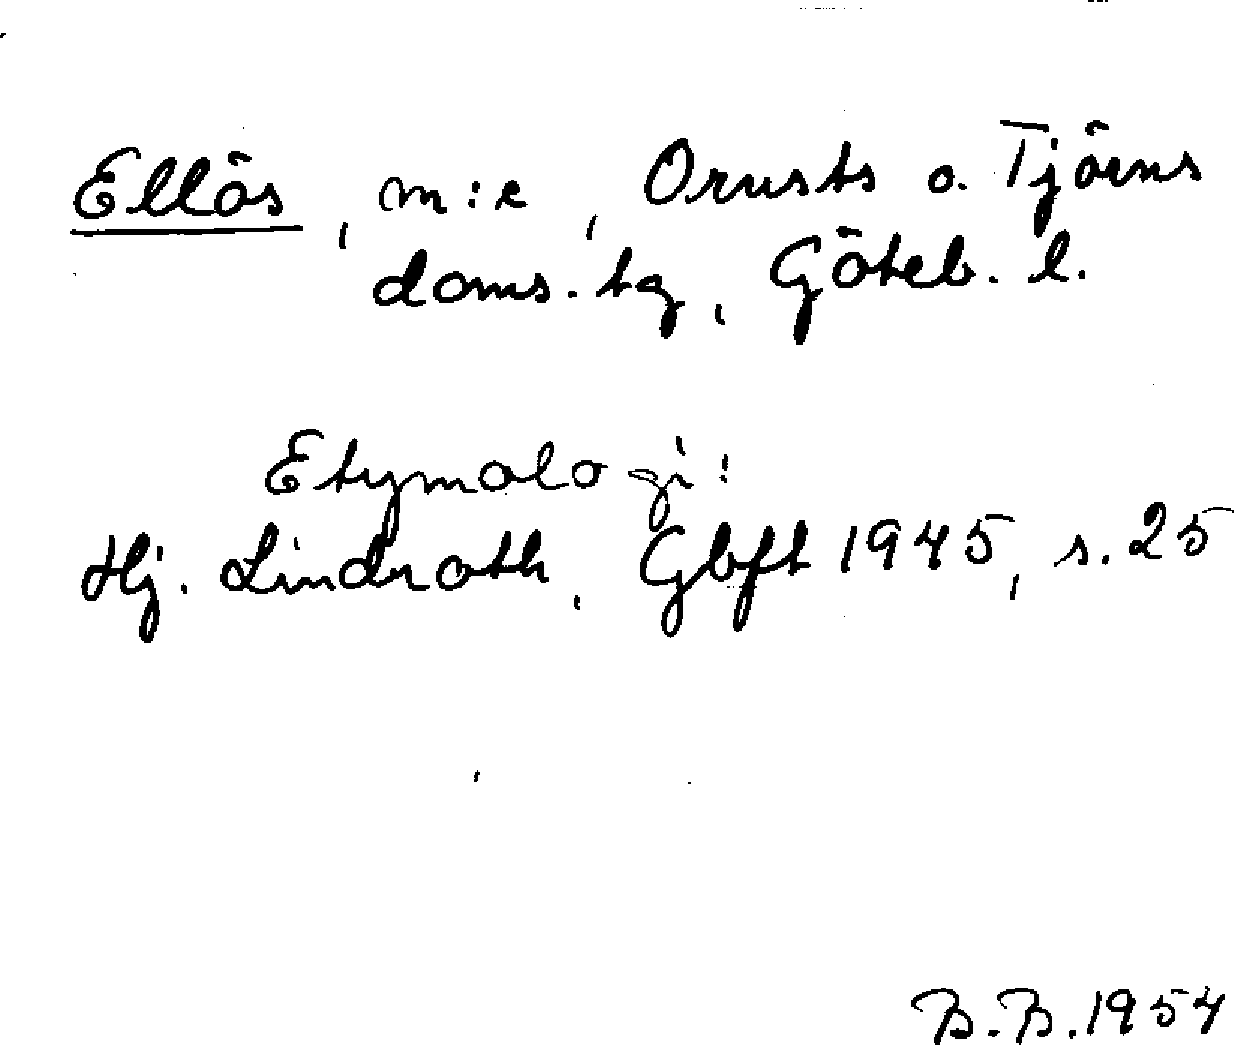 Ellös, m:e, Orusts o. Tjörns
doms. tg, Göteb. l.
Etymologi:
Hj. Lindroth, Gbft 1945, s. 25
B.B. 1954